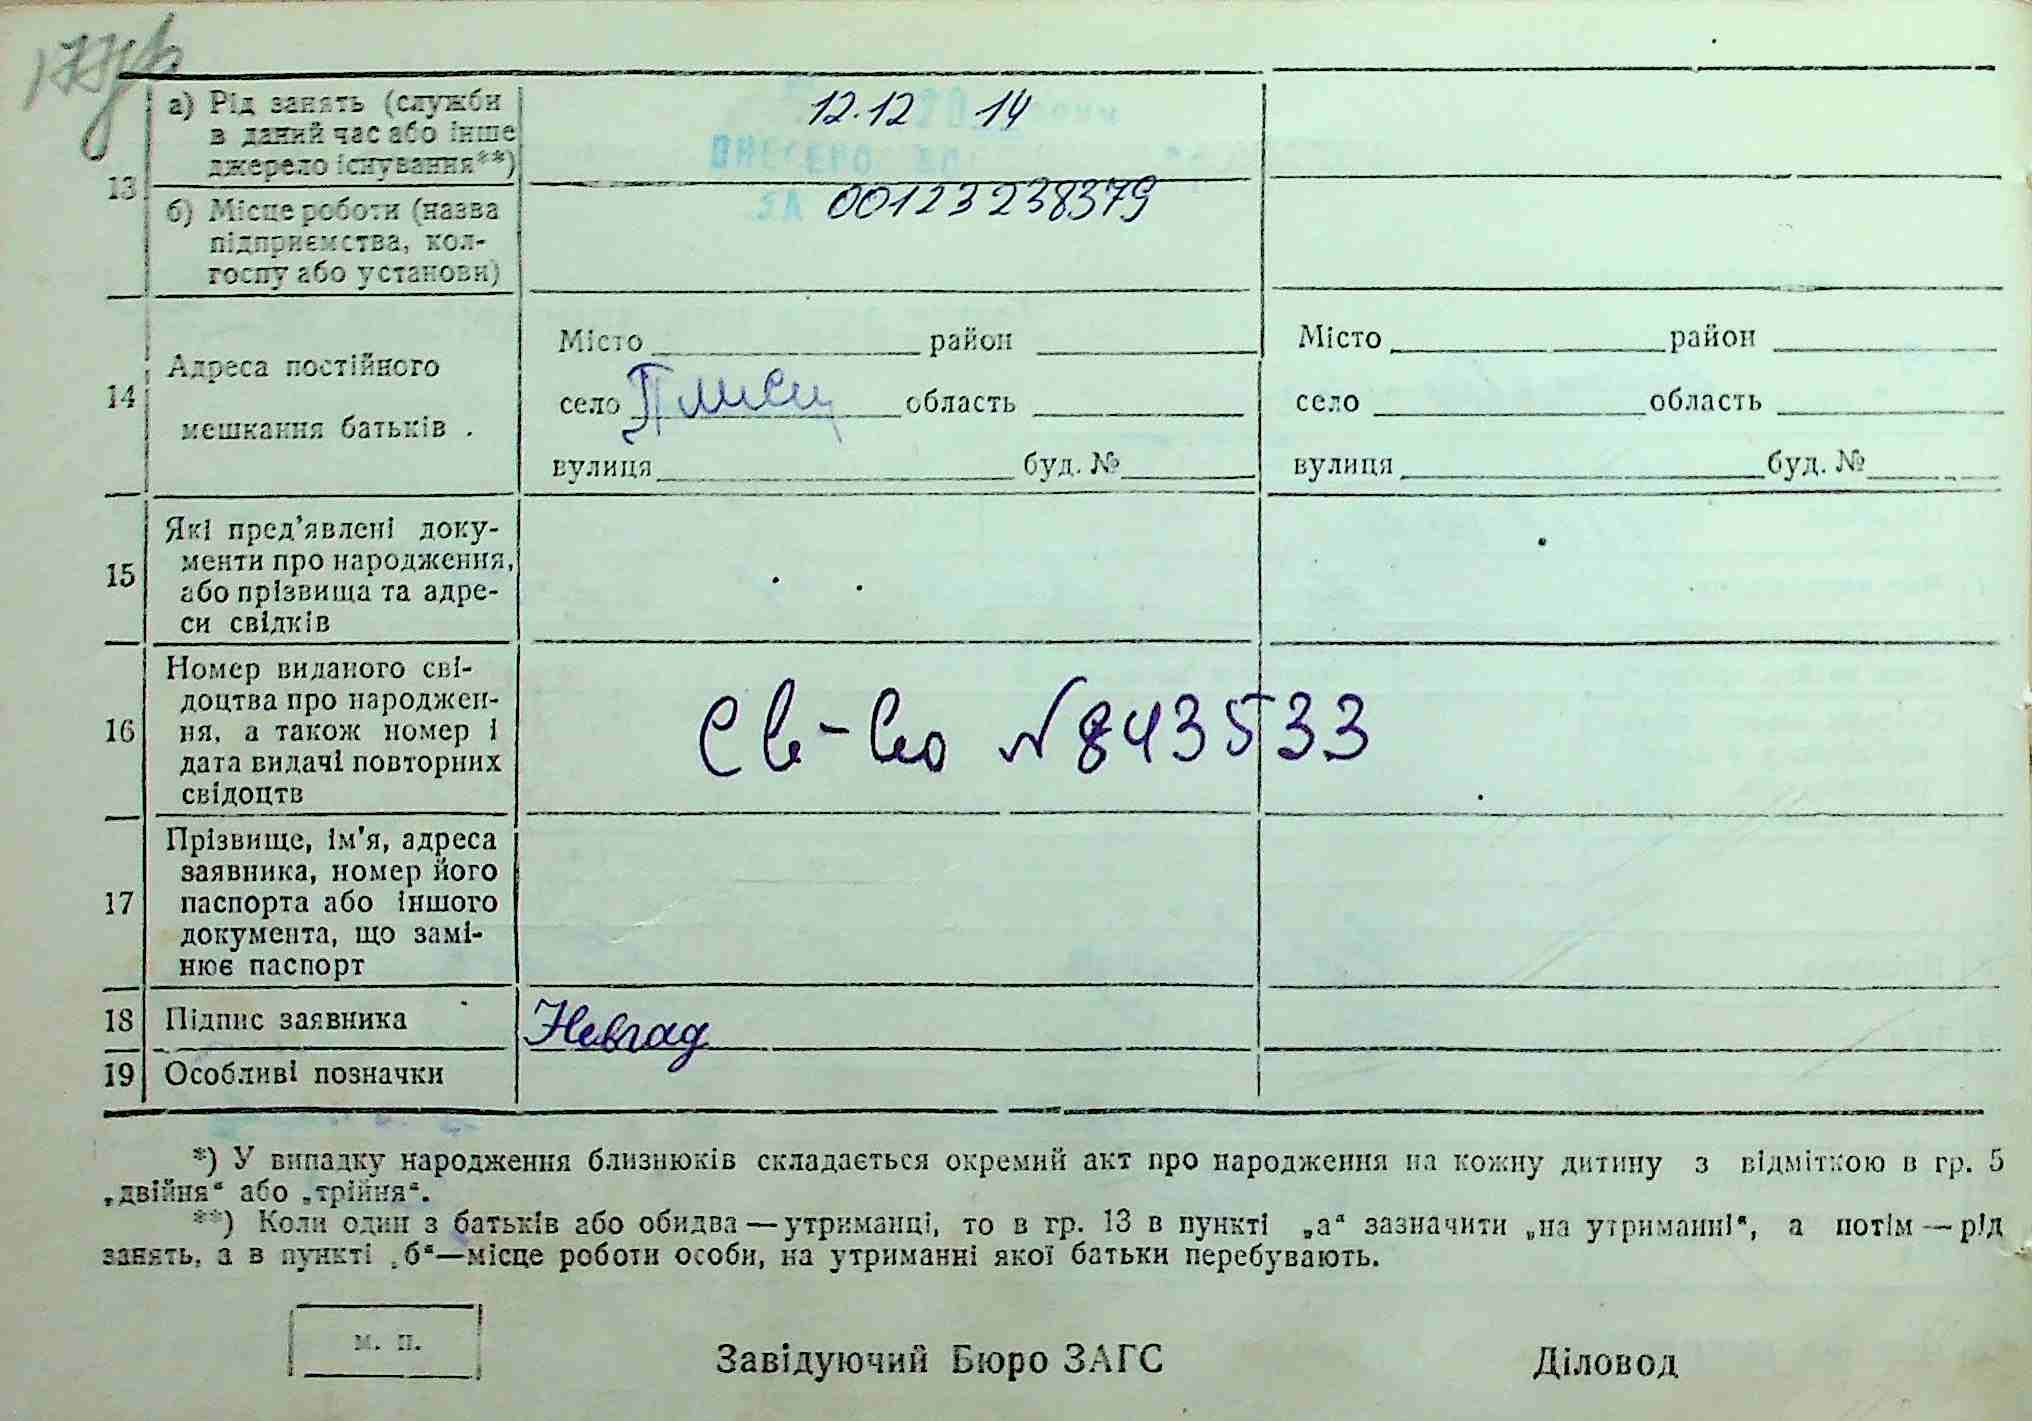 а) Рід занять (служби
в даний час або інше
джерело існування**)
12.12 14
13
б) Місце роботи (назва
підприємства, кол-
госпу або установи)
00123238379
14
Адреса постійного
мешкання батьків .
Місто район
село область
вулиця буд. №
Місто район
село область
вулиця буд. №
15
Які пред'явлені доку-
менти про народження,
або прізвища та адре-
си свідків
16
Номер виданого сві-
доцтва про народжен-
ня, а також номер і
дата видачі повторних
свідоцтв
Св-во №843533
17
Прізвище, ім'я, адреса
заявника, номер його
паспорта або іншого
документа, що замі-
нює паспорт
18 Підпис заявника
Невгад
19 Особливі позначки
*) У випадку народження близнюків складається окремий акт про народження на кожну дитину з відміткою в гр. 5
„двійня“ або „трійня“.
**) Коли один з батьків або обидва — утриманці, то в гр. 13 в пункті „а“ зазначити „на утриманні“, а потім — рід
занять, а в пункті „б“—місце роботи особи, на утриманні якої батьки перебувають.
м. п.
Завідуючий Бюро ЗАГС
Діловод